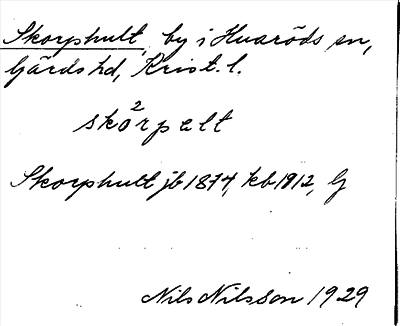 Skorphult, by i Huaröds sn,
Gärds hd, Krist. l.
2
skorpelt
Skorphult jb 1874, kb 1912, G
Nils Nilsson 1929